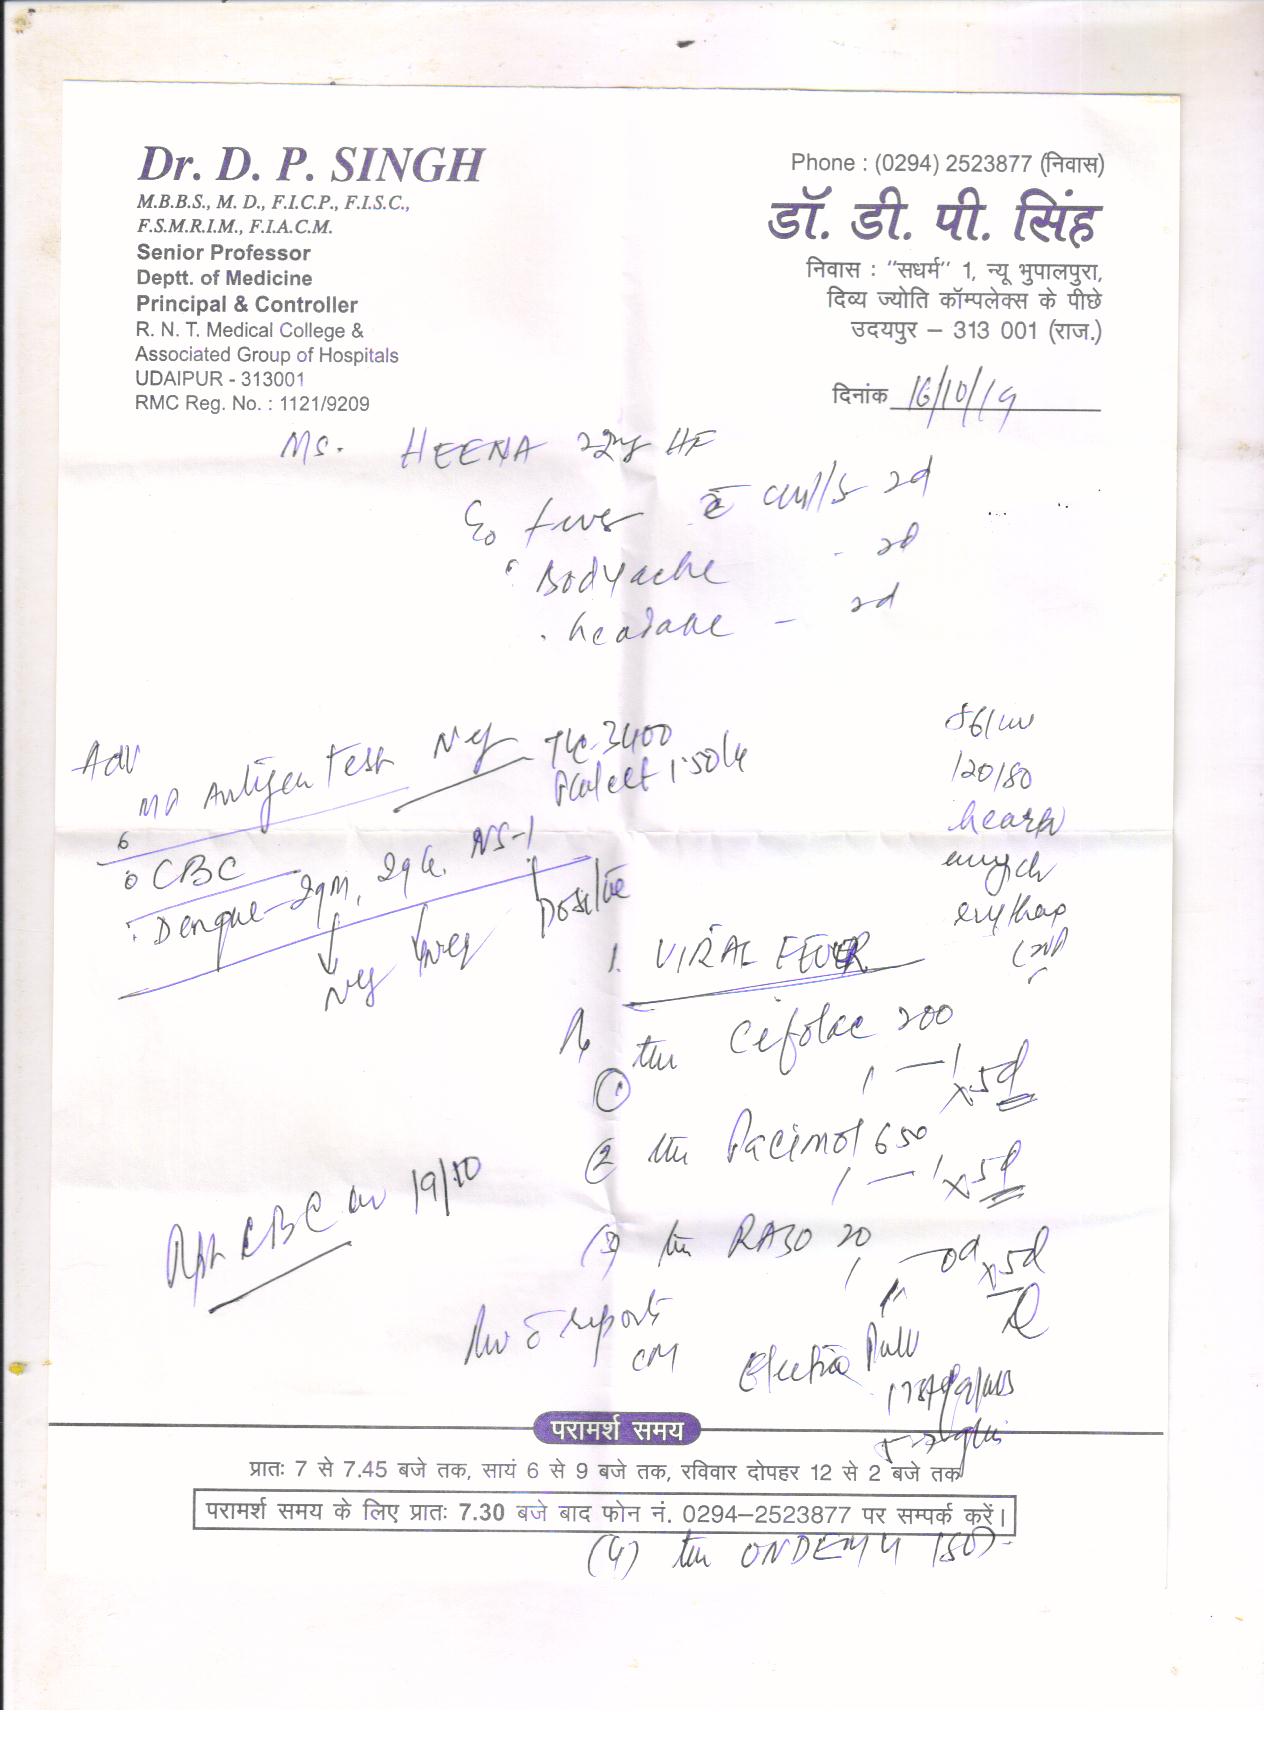 Dr. D. P. SINGH
M.B.B.S., M. D., F.I.C.P., F.I.S.C.,
F.S.M.R.I.M., F.I.A.C.M.
Senior Professor
Deptt. of Medicine
Principal & Controller
R. N. T. Medical College &
Associated Group of Hospitals
UDAIPUR - 313001
RMC Reg. No. : 1121/9209
Phone : (0294) 2523877 (निवास)
डॉ. डी. पी. सिंह
निवास : "सधर्म" 1, न्यू भुपालपुरा,
दिव्य ज्योति कॉम्पलेक्स के पीछे
उदयपुर – 313 001 (राज.)
दिनांक 16/10/19
Ms. HEENA 22y HF
fever c̄ chills 2d
Bodyache - 2d
headache - 2d
Adv
MP Antigen Test Neg TLC-3400
Platelet 1.50
CBC
Dengue - IgM, IgG, NS-1
Neg Neg Positive
120/80
1. VIRAL FEVER
Cefolac 200
1 — 1 x 5d
② Pacimol 650
1 — 1 x 5d
(3) RAZO 20
1 — x 5d
Rpt CBC on 19/10
c̄ reports
Electral
परामर्श समय
प्रातः 7 से 7.45 बजे तक, सायं 6 से 9 बजे तक, रविवार दोपहर 12 से 2 बजे तक
परामर्श समय के लिए प्रातः 7.30 बजे बाद फोन नं. 0294–2523877 पर सम्पर्क करें।
(4) ONDEM 4